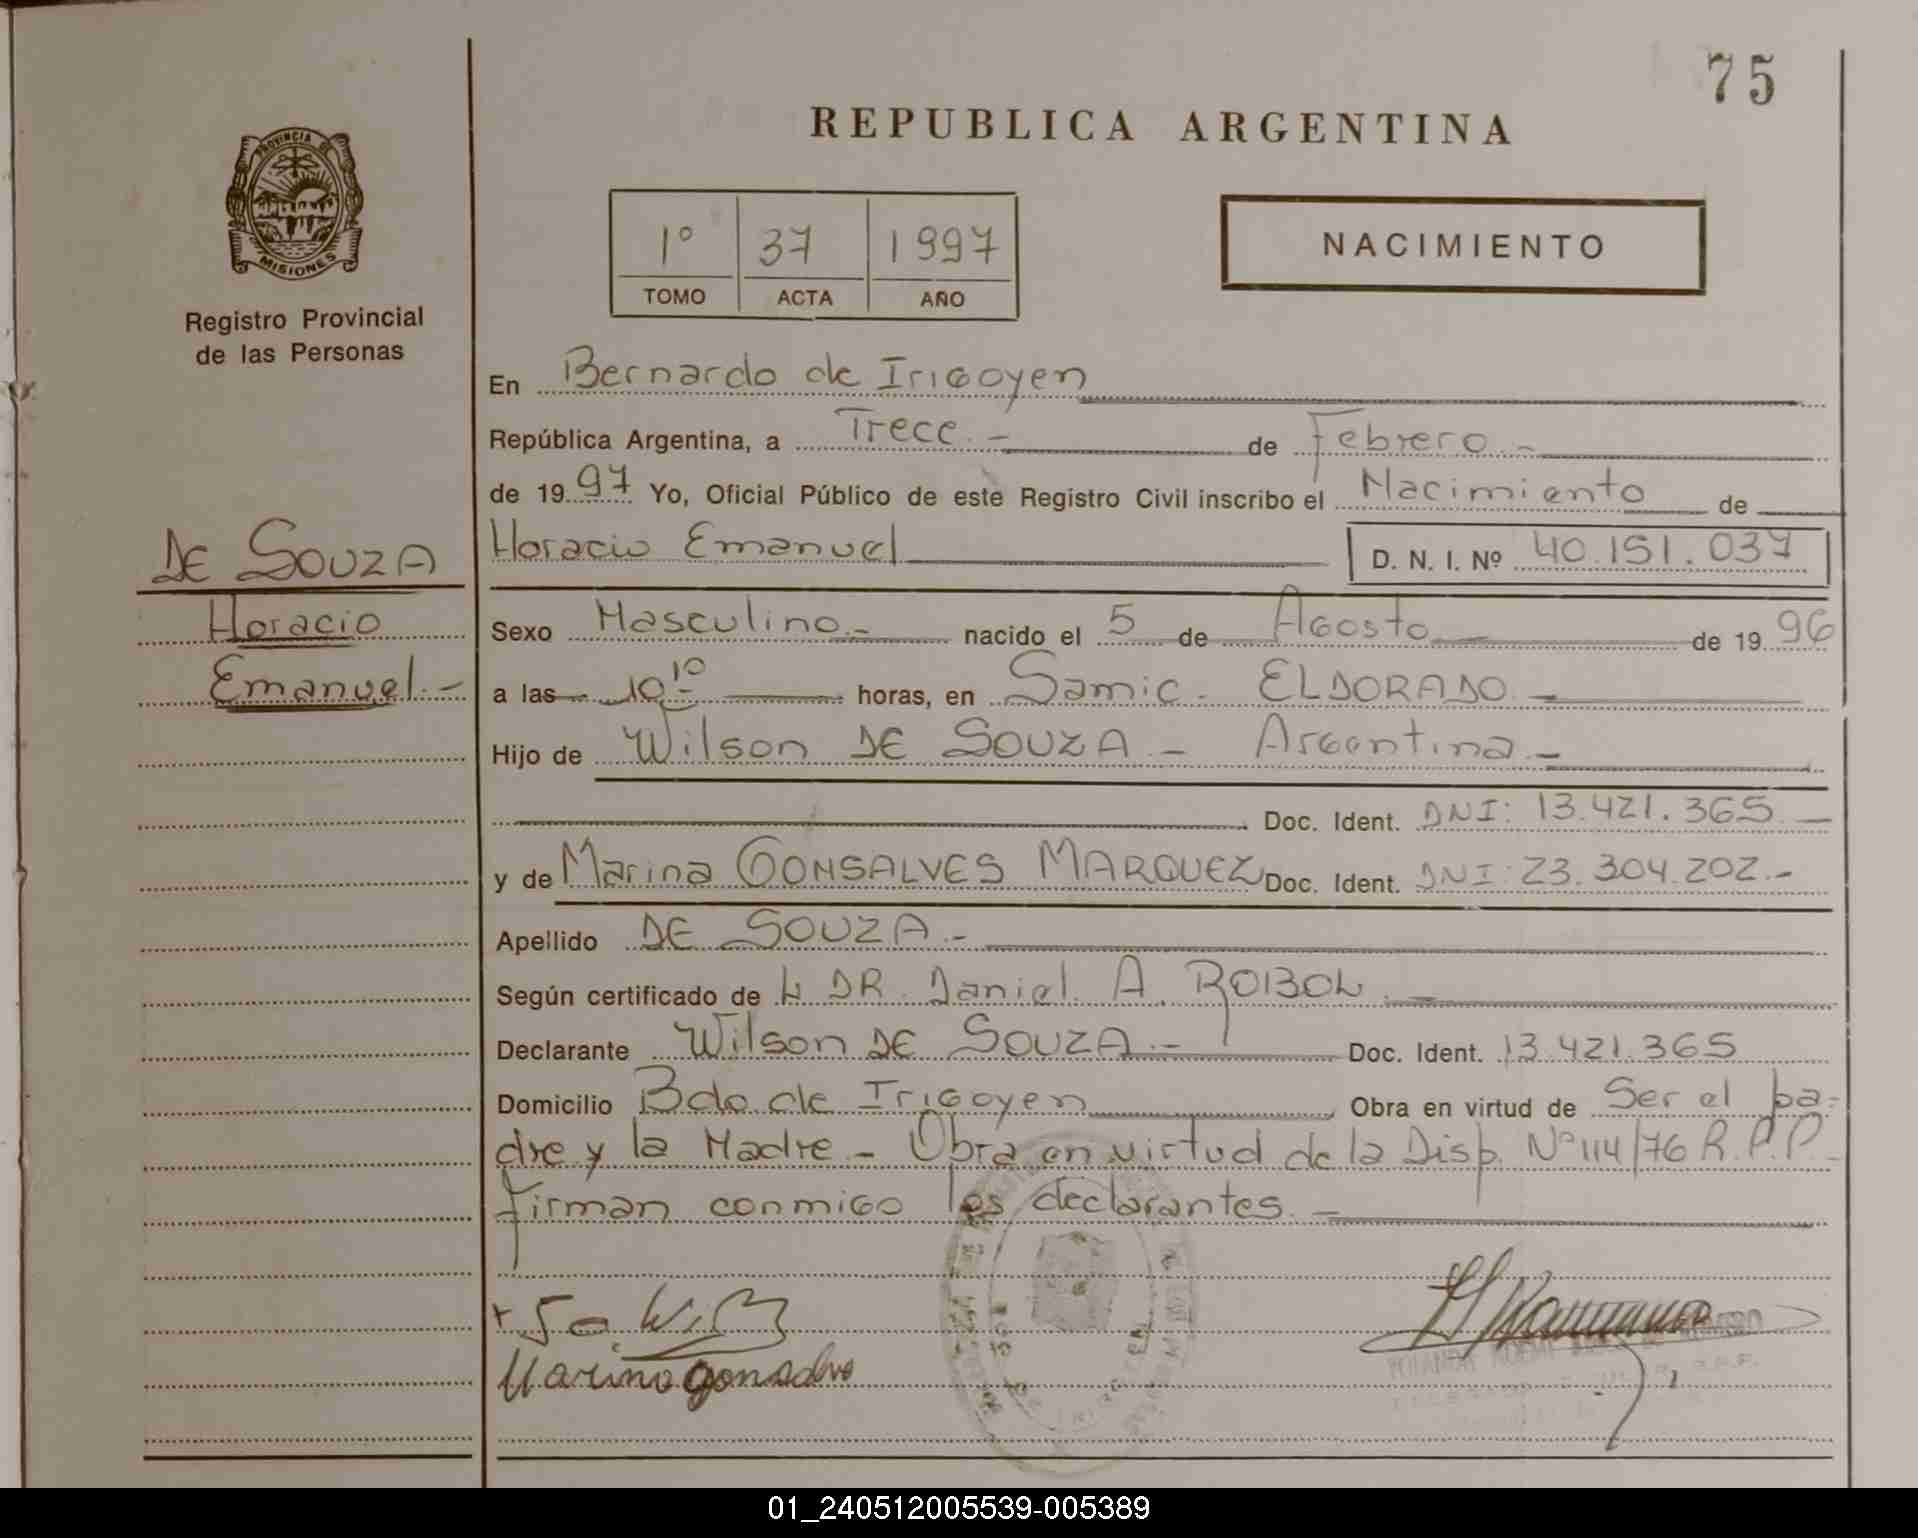 75
REPUBLICA ARGENTINA
PROVINCIA DE
MISIONES
Registro Provincial
de las Personas
1º 37 1997
TOMO ACTA AÑO
NACIMIENTO
En Bernardo de Irigoyen
República Argentina, a Trece.- de Febrero.-
de 1997 Yo, Oficial Público de este Registro Civil inscribo el Nacimiento de
Horacio Emanuel D. N. I. Nº 40.151.037
DE SOUZA
Horacio
Emanuel.-
Sexo Masculino.- nacido el 5 de Agosto de 1996
a las 10 10 horas, en Samic. ELDORADO.-
Hijo de Wilson DE SOUZA.- Argentina.-
Doc. Ident. DNI: 13.421.365.-
y de Marina GONSALVES MARQUEZ Doc. Ident. DNI: 23.304.202.-
Apellido DE SOUZA.-
Según certificado de DR. Daniel A. ROBOL.-
Declarante Wilson DE SOUZA.- Doc. Ident. 13.421.365
Domicilio Bdo de Irigoyen Obra en virtud de Ser el pa-
dre y la Madre - Obra en virtud de la Disp. Nº 114/76 R.P.P.-
Firman conmigo los declarantes.-
Marina gonsalves
01_240512005539-005389